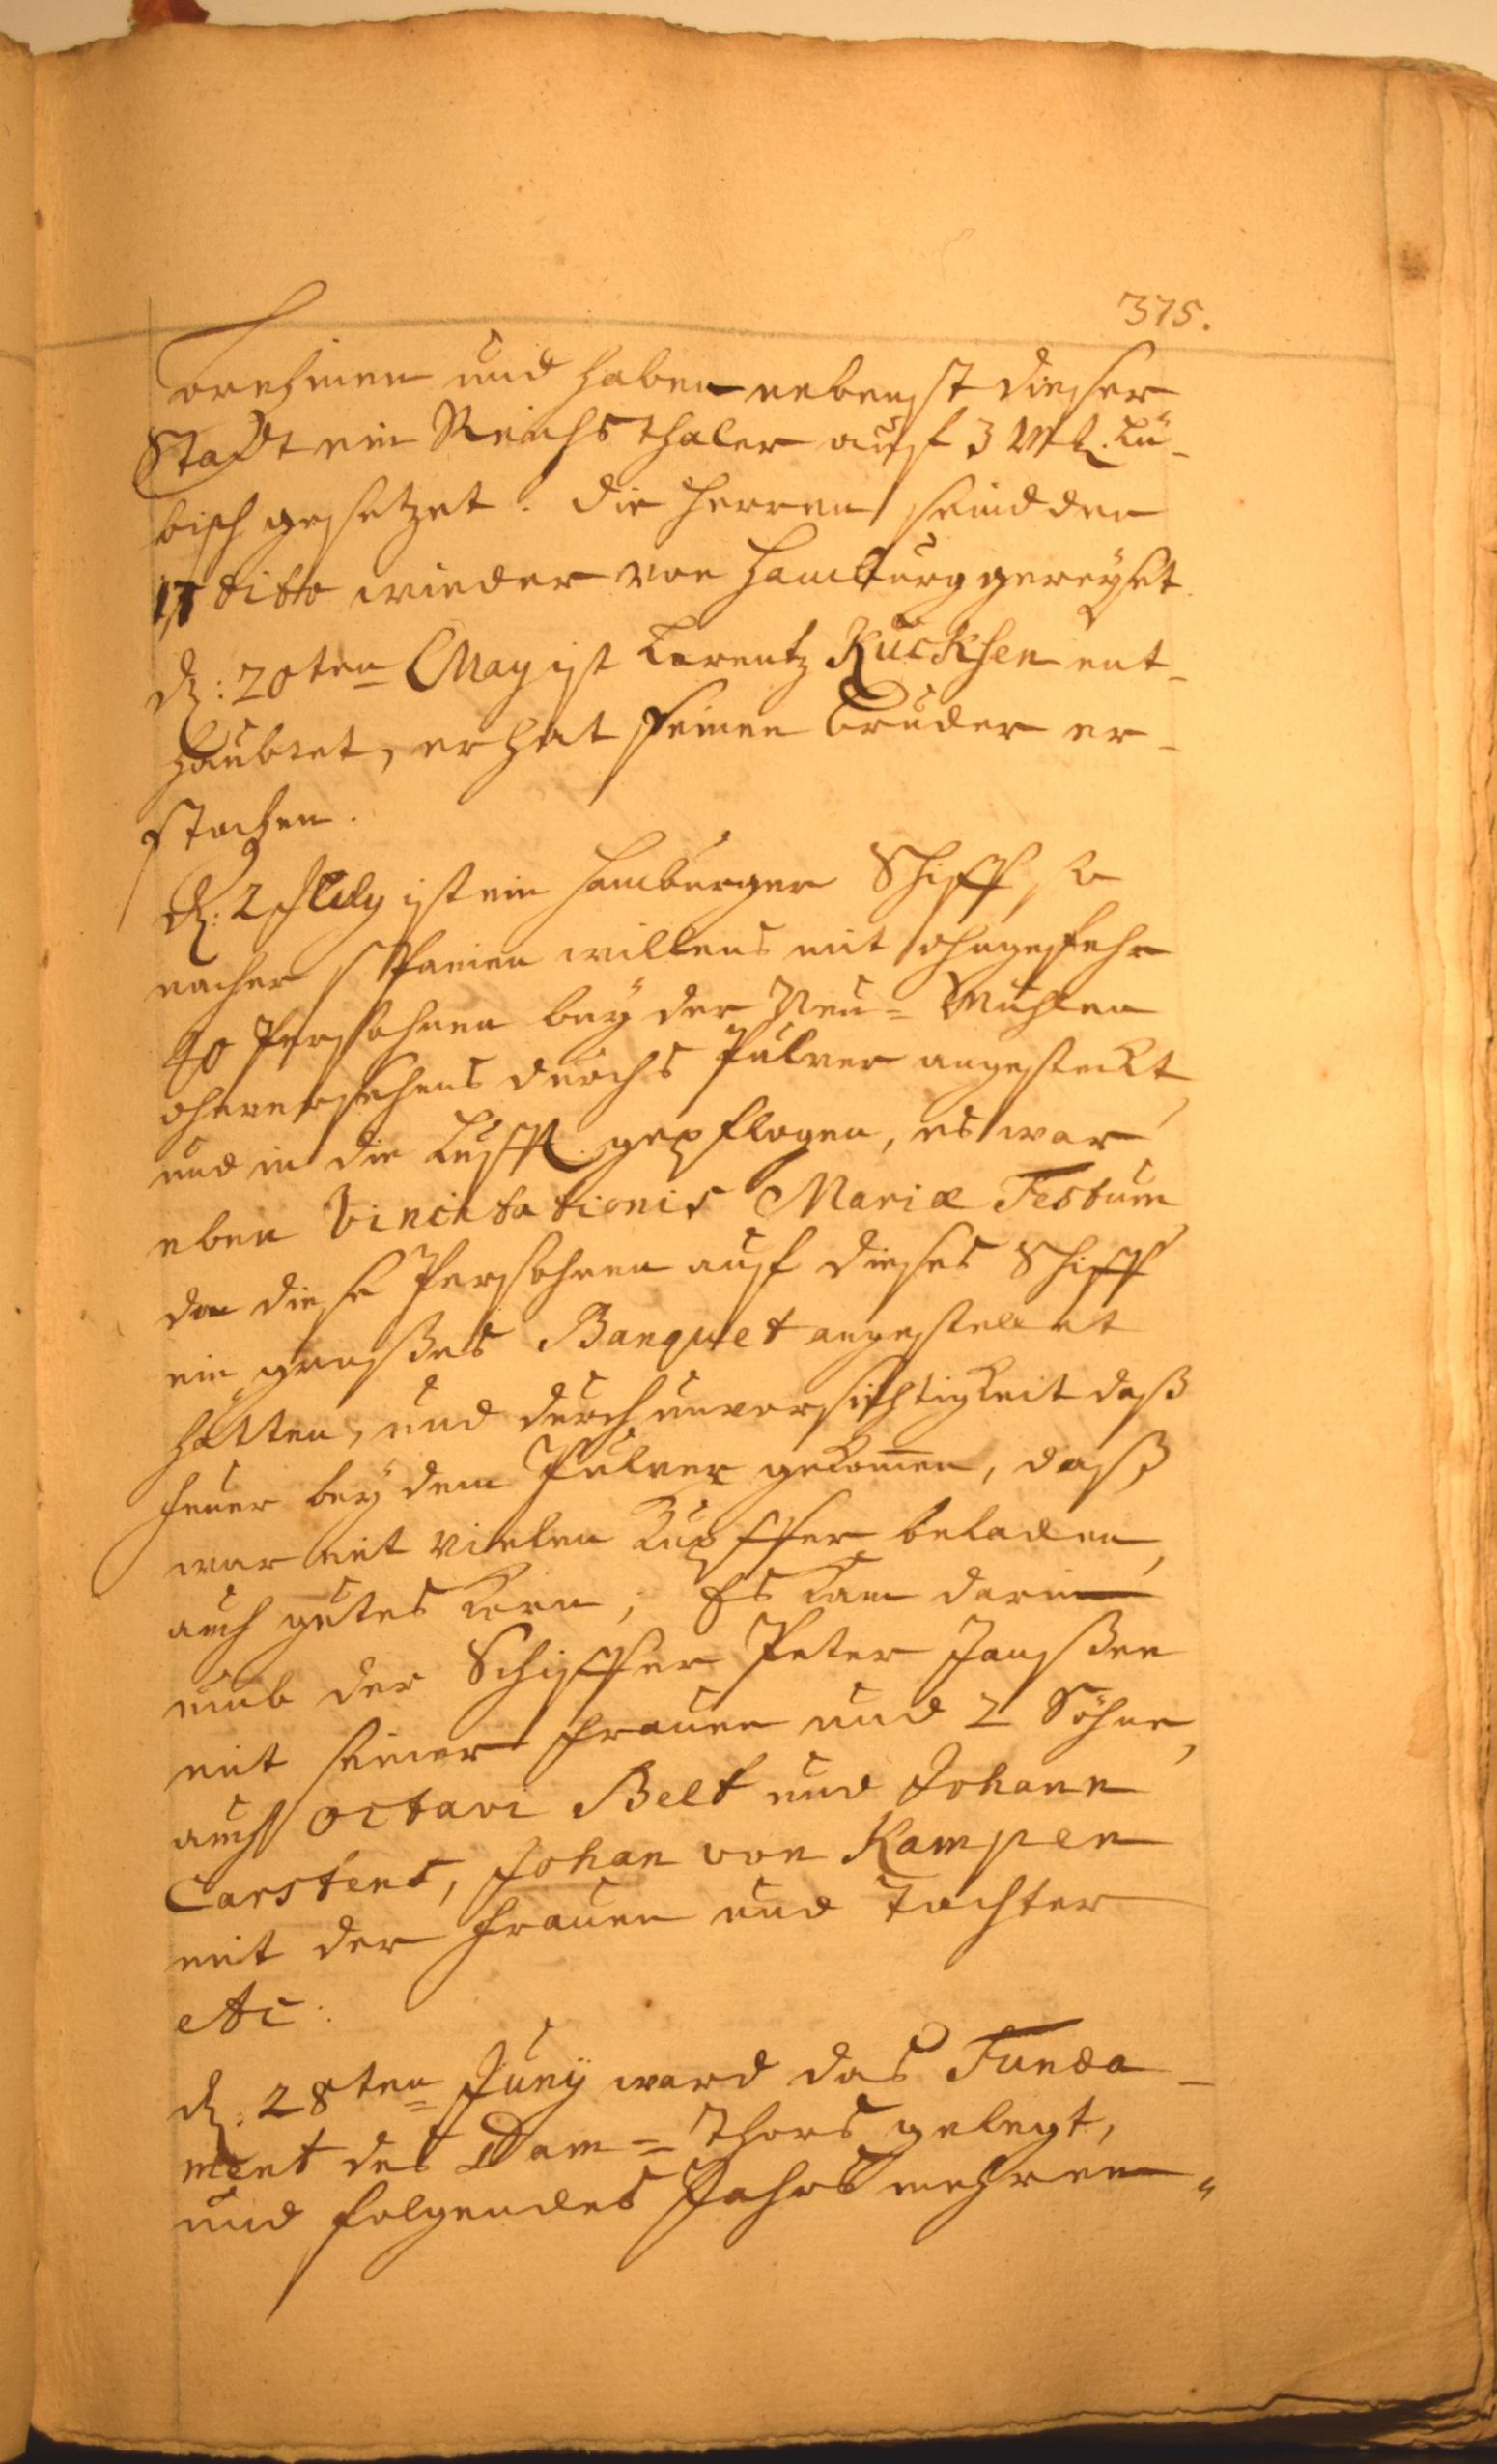 375.
vornehmen und haben nebenst dieser
Stadt ein Reichsthaler auf 3 Mk. Lü-
bisch gesetzet. Die Herren seind den
17 dito wieder von Hamburg gereyset.
d: 20ten May ist Lorentz Kucksen ent-
häubtet, er hat seinen Bruder er-
stochen.
d: 2 July ist ein Hamburger Schiff so
nacher Spanien willens mit ohngefehr
40 Persohnen bey der Neu=Mühlen
ohnversehens durchs Pulver angesteckt,
und in die Lufft geflogen, es war
eben Vincitationis Mariæ Festum,
da diese Persohnen auf dieses Schiff
ein großes Banquet angestellet
hätten, und durch unvorsichtigkeit daß
feuer bey dem Pulver gekom̄en, daß
war mit vielen Kupffer beladen,
auch gutes Korn, Es kam darin
umb der Schiffer Peter Janßen
mit seiner Frauen und 2 Söhne,
auch Octavi Belt und Johann
Carstens, Johan von Kampen
mit der Frauen und Tochter
etc.
d: 28ten Juny ward das Funda-
ment des Dam=Thors gelegt,
und folgendes Jahrs